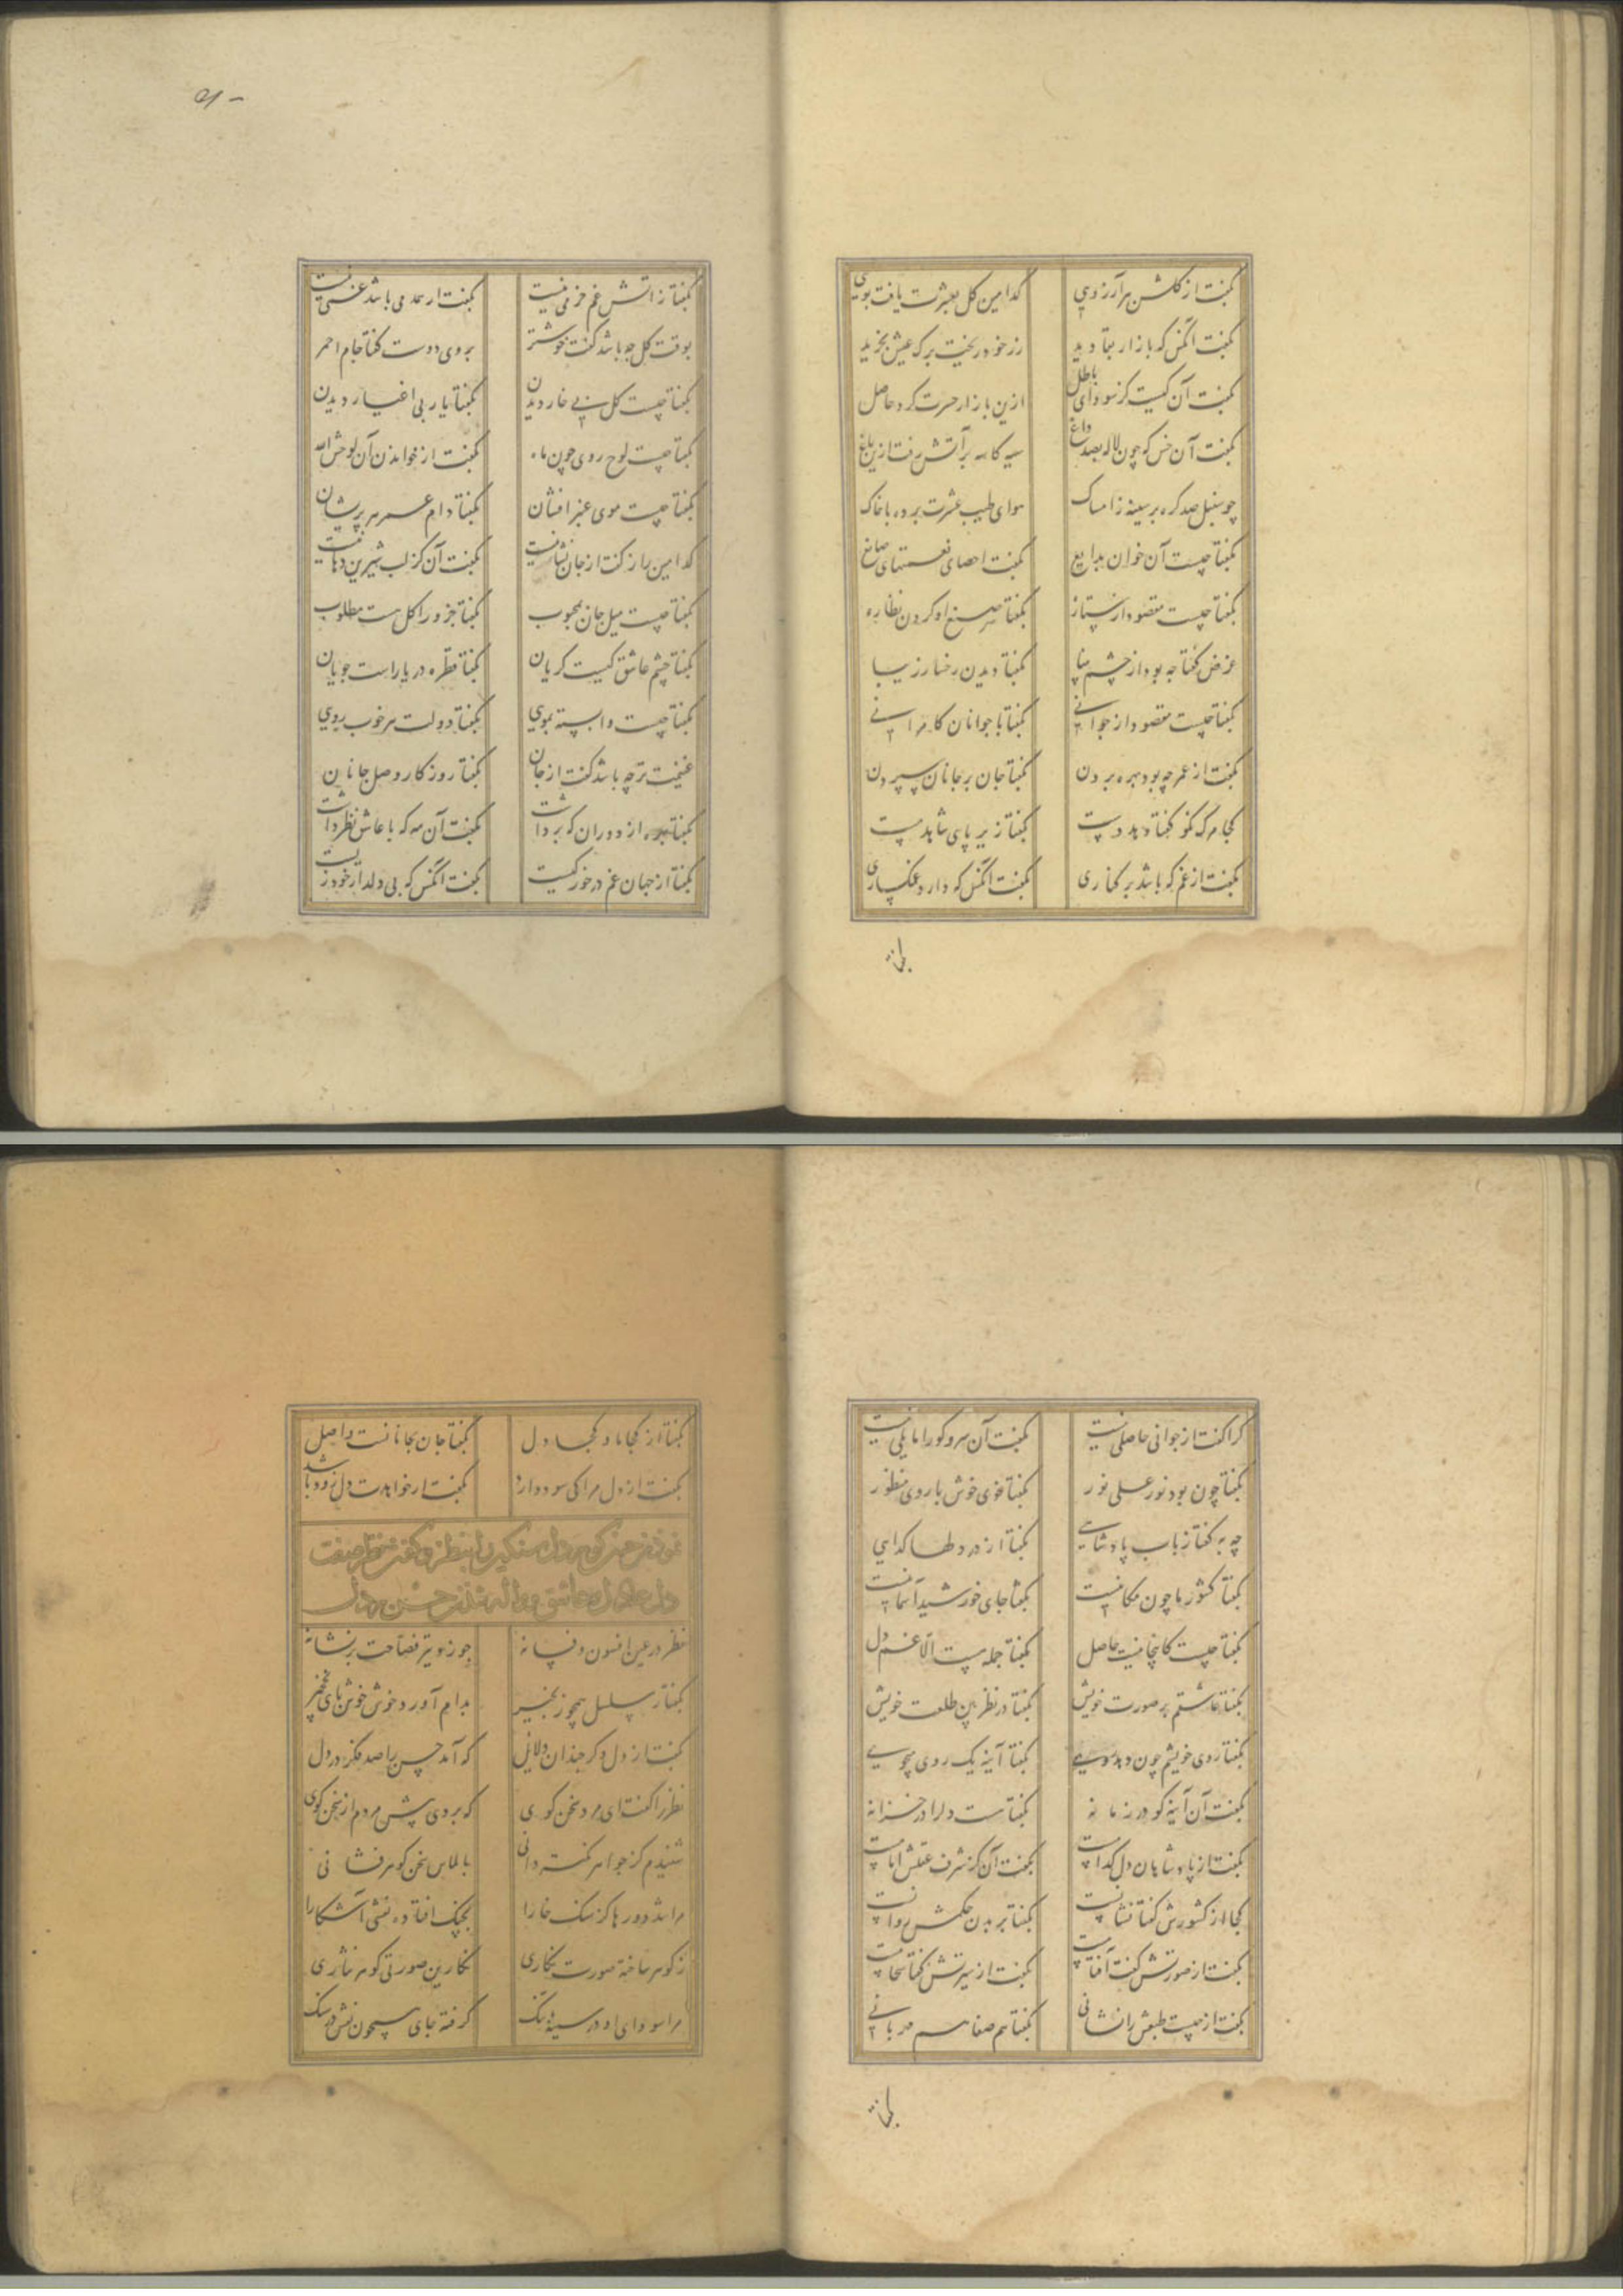 بگفت از گلشن هر آرزویی کدامین گل بعشرت یافت بویی
بگفت آنکس که بازار بقا دید رز خود ریخت برک عیش بخرید
بگفت آن کیست کز سودای باطل ازین بازار حسرت کرد حاصل
بگفت آن خس که چون لاله بصد داغ سیه کاسه بر آتش رفت ازین باغ
چو سنبل صد گره بر سینه ز امساک هوای طیب عشرت برده با خاک
بگفتا چیست آن خوان بدایع بگفت احصای نعمتهای صانع
بگفتا چیست مقصود از بگفتا صنع او کردن نظاره
غرض گفتا چه بود از چشم بینا بگفتا دیدن رخسار زیبا
بگفتا چیست مقصود از جوانی بگفتا با جوانان کامرانی
بگفت از عمر چه بود بهره بردن بگفتا جان بر جانان سپردن
بگفتا زیر پای شاهد مست
بگفت از غم که باشد بر کناری بگفت آنکس که دارد غمگساری
بگفتا
بگفتا ز آتش غم خرمی نیست بگفت ار همدمی باشد غمی نیست
بوقت گل چه باشد گفت خوشتر بروی دوست گفتا جام احمر
بگفتا چیست گل بی خار دیدن بگفتا یار بی اغیار دیدن
بگفتا چیست لوح روی چون ماه بگفت از خواندن آن لوحش الله
بگفتا چیست موی عنبر افشان بگفتا دام عمر پریشان
کدامین راز گفت از جان نشانیست بگفت آن کز لب شیرین دهانیست
بگفتا چیست میل جان بمحبوب بگفتا جزو را کل هست مطلوب
بگفتا چشم عاشق کیست گریان بگفتا قطره دریا راست جویان
بگفتا چیست وابسته بمویی بگفتا دولت هر خوب رویی
غنیمت تر چه باشد گفت از جان بگفتا روزگار وصل جانان
بگفتا بهره از دوران که برداشت بگفت آن مه که با عاشق نظر داشت
بگفتا از جهان غم در خور کیست بگفت آنکس که بی دلدار خود زیست
کرا گفت از جوانی حاصلی نیست بگفت آن سرو کو را مایلی نیست
بگفتا چون بود نور علی نور بگفتا خوی خوش با روی منظور
چه به گفتا ز باب پادشاهی بگفتا از در دلها گدایی
بگفتا کشور ما چون مکانیست بگفتا جای خورشید آسمانیست
بگفتا چیست کاینجا نیست حاصل بگفتا جمله هست الا غم دل
بگفتا عاشقم بر صورت خویش بگفتا در نظر بین طلعت خویش
بگفتا روی خویشم چون دهد بگفتا آینه یک روی
بگفت آن آینه کو در زمانه بگفتا هست دلرا در خزانه
بگفت از پادشاهان دل کدامست بگفت آن کز شرف عقلش امامست
کجا از کشورش گفتا نشانست بگفتا بر بدن حکمش روانست
بگفت از صورتش گفت آفتابست بگفت از سیرتش گفتا سحابست
بگفت از چیست طبعش را نشانی بگفتا هم صفا هم مهربانی
بگفتا
بگفتا از کجا ما و کجا دل بگفتا جان بجانانست واصل
بگفت از دل مرا کی سود دارد بگفت ار خواهدت دل زود باشد
نظر در عین افسون و فسانه چو زد تیر فصاحت بر نشانه
بگفتار مسلسل همچو زنجیر بدام آورد خوش خوش پای نخجیر
بگفت از دل دگر چندان دلایل که آمد حسن را صد مکر در دل
نظر را گفت ای مرد سخن گوی که بردی پیش مردم از سخن گوی
شنیدم کز جواهر نکته دانی بالماس سخن گوهر فشانی
مرا شد دورها کز سنگ خارا بچنگ افتاده نقشی آشکارا
ز گوهر ساخته صورت نگاری نگارین صورتی گوهر نثاری
مرا سودای او در سینه تنگ گرفته جای همچون نقش در سنگ